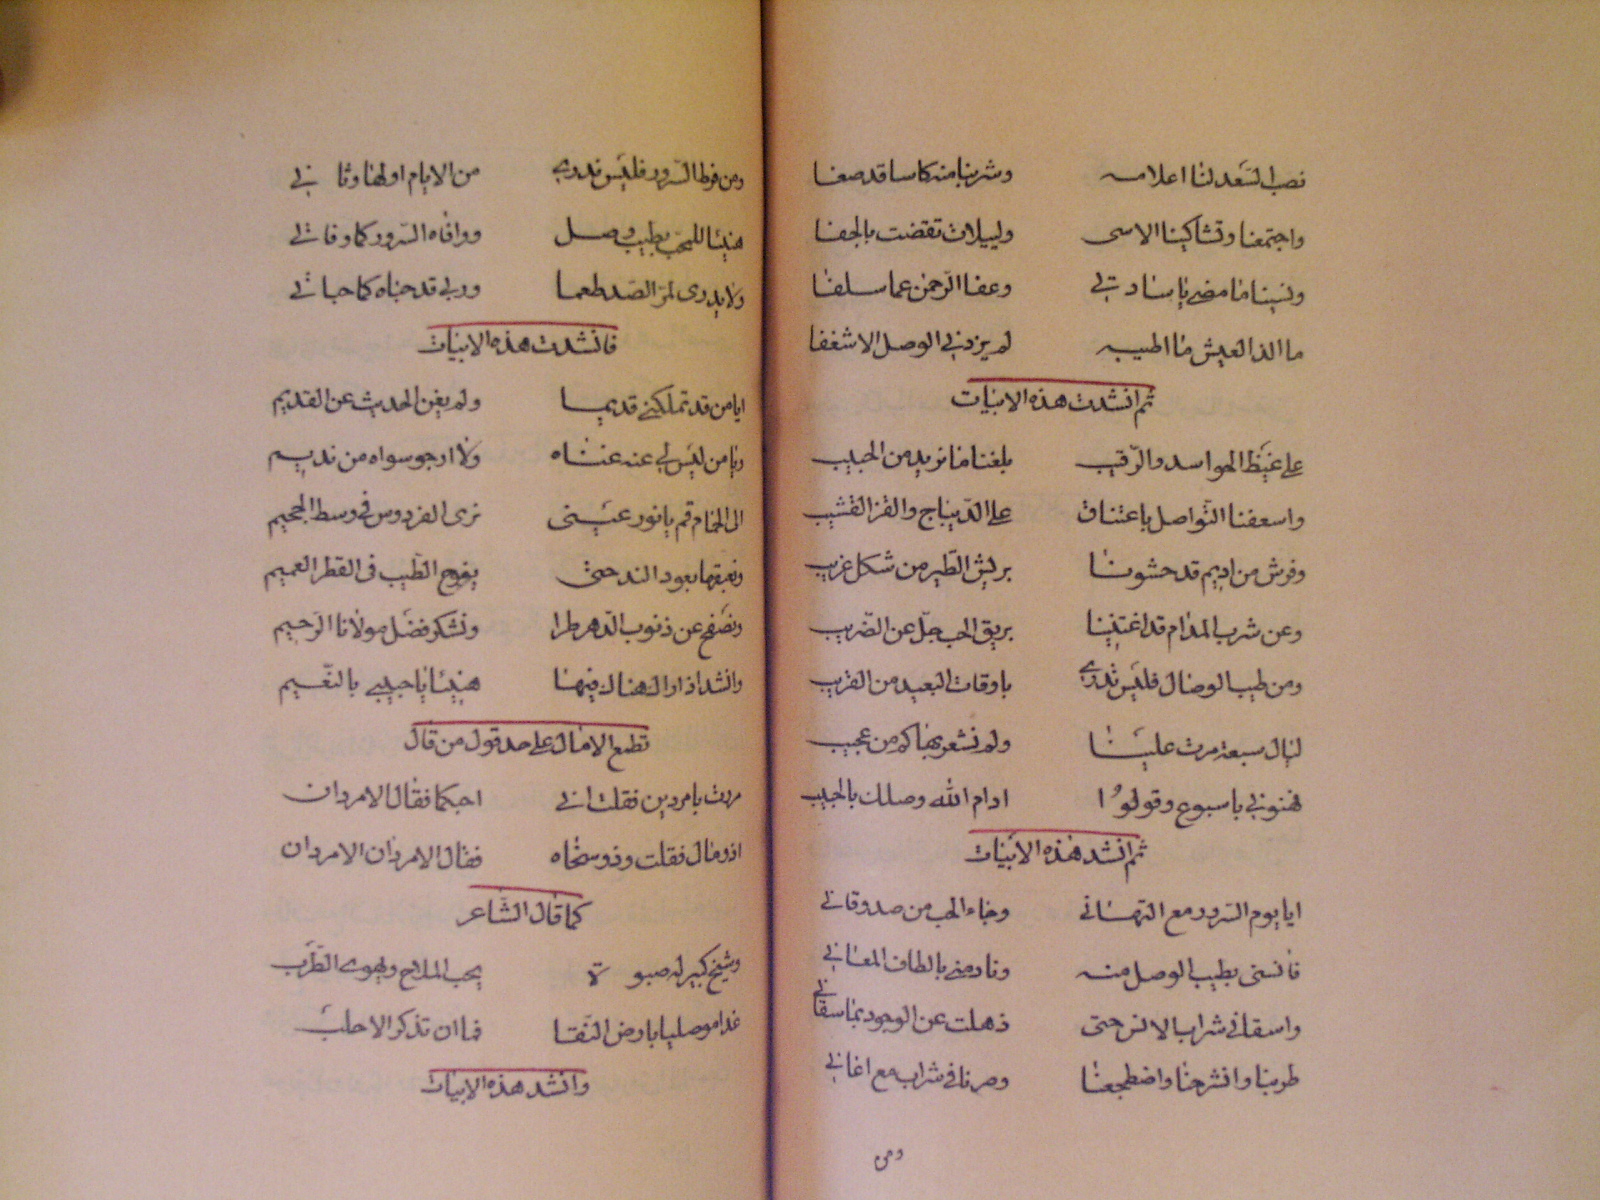 نصب السعد لنا اعلامه وشربنا منه كاسا قد صفا
واجتمعنا وتشاكينا الاسى وليلات تقضت بالجفا
ونسينا ما مضى يا سادتي وعفا الرحمن عما سلفا
ما الذ العيش ما اطيبه لم يزدني الوصل الا شغفا
ثم انشدت هذه الابيات
على غيظ الحواسد والرقيب بلغنا ما نريد من الحبيب
واسعفنا التواصل باعتناق على الديباج والقز القشيب
وفرش من اديم قد حشونا بريش الطير من شكل غريب
وعن شرب المدام قد اغتنينا بريق الحب جل عن الضريب
ومن طيب الوصال فليس ندري باوقات البعيد من القريب
ليال سبعة مرت علينا ولم نشعر بها كم من عجيب
فهنوني باسبوع وقولوا ادام الله وصلك بالحبيب
ثم انشد هذه الابيات
ايا يوم السرور مع التهاني وجاء الحب من صد وقاني
فانسني بطيب الوصل منه ونادمني بالطاف المعاني
واسقاني شراب الانس حتى ذهلت عن الوجود بما سقاني
طربنا وانشرحنا واضطجعنا وصرنا في شراب مع اغاني
ومن
ومن فرط السرور فليس ندري من الايام اولها وثاني
هنيئا للمحب بطيب وصل ووافاه السرور كما وفاني
ولا يدري لمر الصد طعما وربي قد حباه كما حباني
فانشدت هذه الابيات
ايا من قد تملكني قديما ولم يغن الحديث عن القديم
ويا من ليس لي عنه غناه ولا ارجو سواه من نديم
الى الحمام قم يا نور عيني نرى الفردوس في وسط الجحيم
ونعبقها بعود الند حتى يفوح الطيب في القطر العميم
ونصفح عن ذنوب الدهر طرا ونشكر فضل مولانا الرحيم
وانشد اذ اراك هناك فيها هنيئا يا حبيبي بالنعيم
تطبع الامال على حد قول من قال
مررت بامردين فقلت اني احبكما فقال الامردان
اذو مال فقلت وذو سخاه فقال الامردان الامردان
كما قال الشاعر
وشيخ كبير له صبوة يحب الملاح ويهوى الطرب
غدا موصليا بارض النقا فما ان تذكر الا حلب
وانشد هذه الابيات